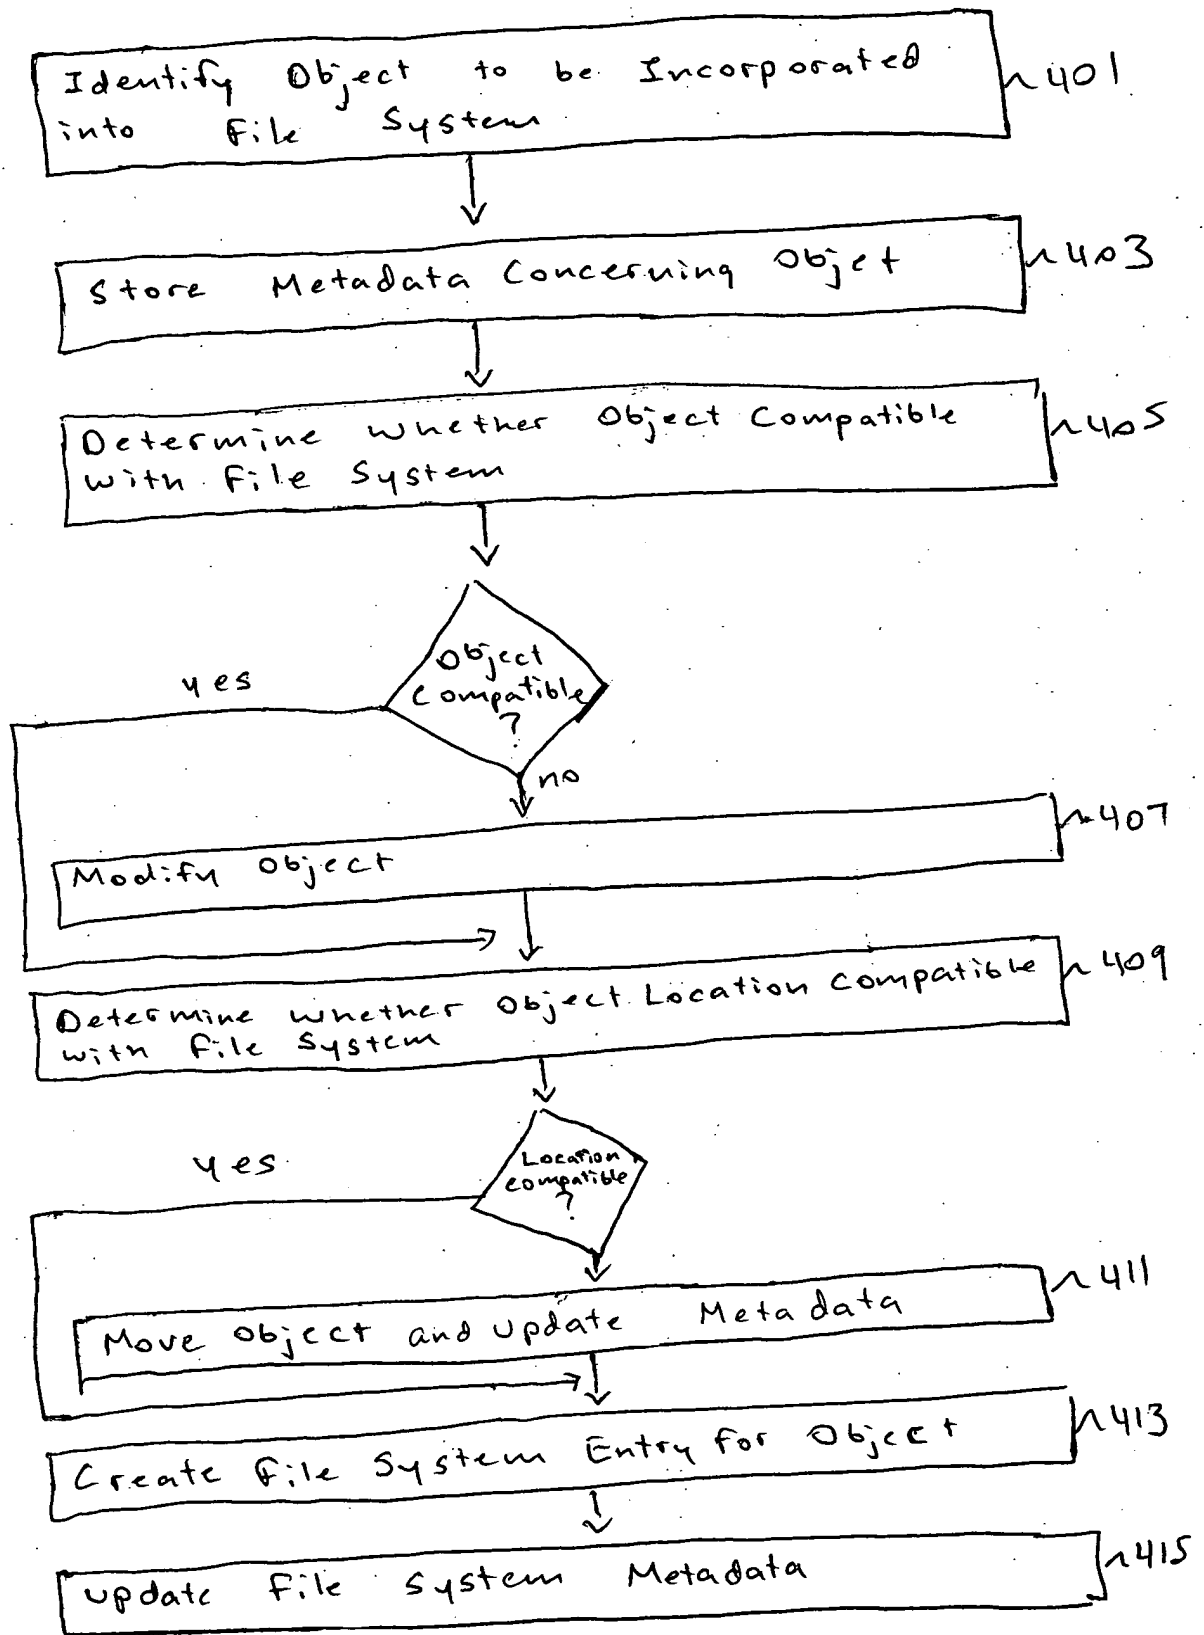 Identify Object to be Incorporated
into File System
401
Store Metadata Concerning Objet
403
Determine Whether Object Compatible
with File System
405
Object
Compatible
?
yes
no
407
Modify Object
Determine Whether Object Location Compatible
with File System
409
Location
Compatible
?
yes
411
Move Object and Update Metadata
413
Create File System Entry for Object
415
Update File System Metadata